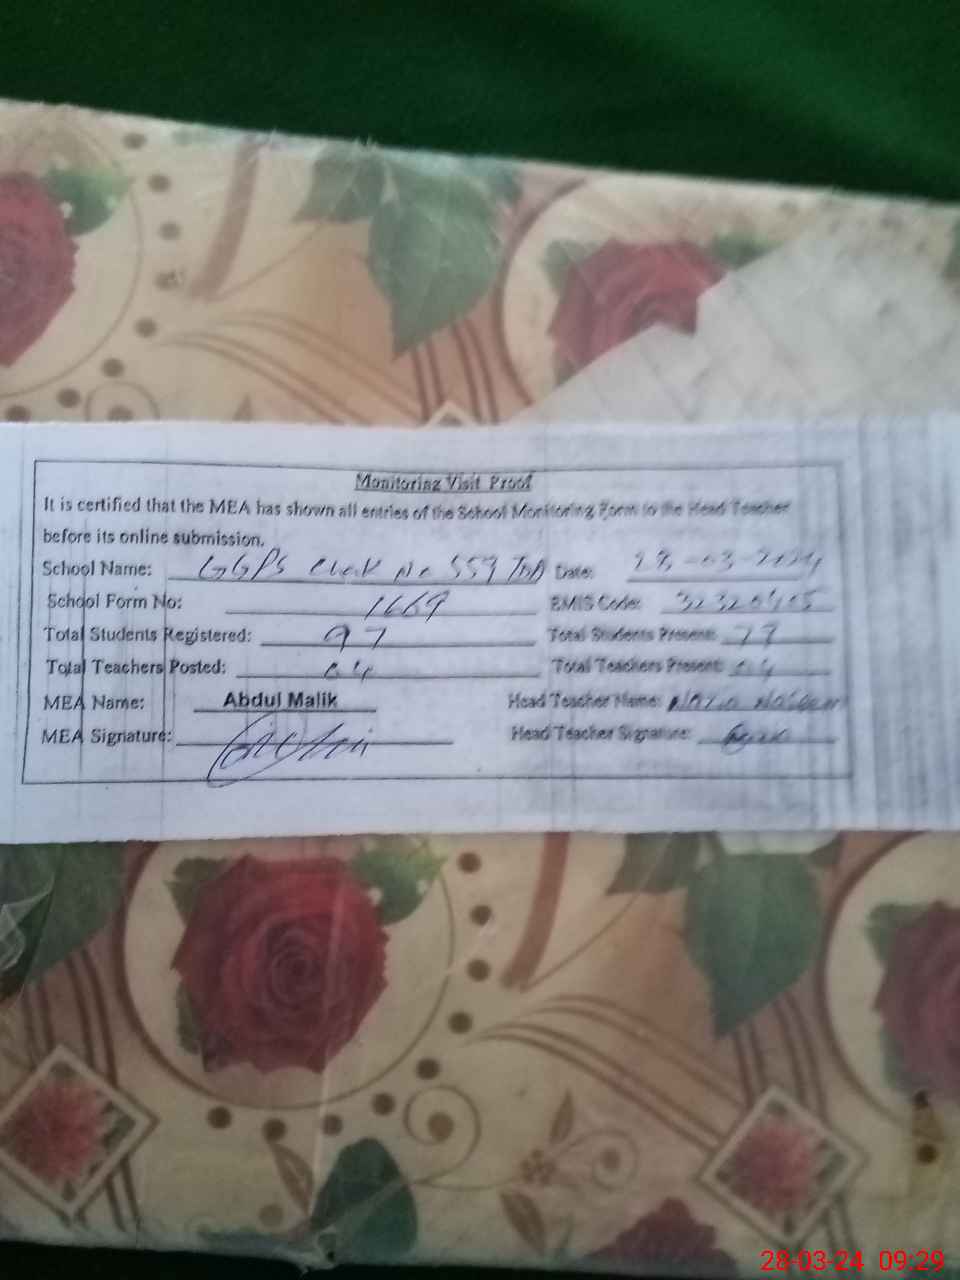 Monitoring Visit Proof
It is certified that the MEA has shown all entries of the School Monitoring Form to the Head Teacher
before its online submission.
School Name: GGPS Chak No 559 TDA Date: 28-03-2024
School Form No: 1669 EMIS Code:
Total Students Registered: 97 Total Students Present: 77
Total Teachers Posted: 04 Total Teachers Present: 04
MEA Name: Abdul Malik Head Teacher Name:
MEA Signature: Head Teacher Signature:
28-03-24 09:29